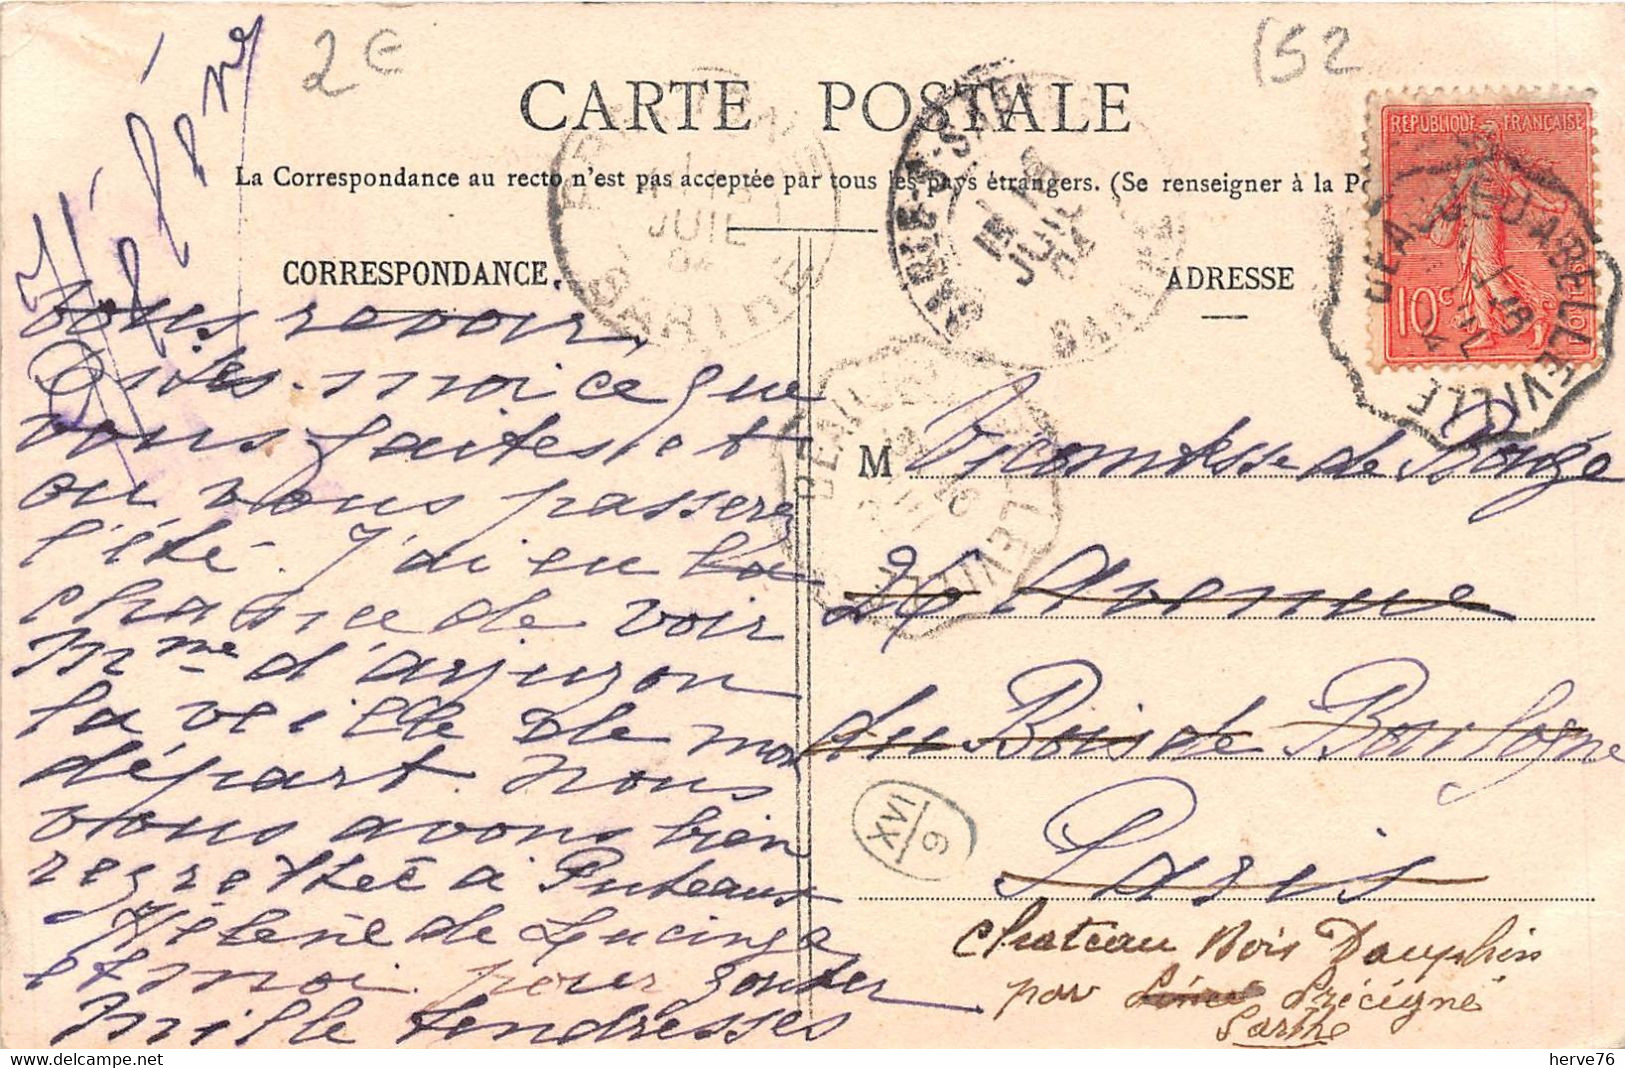 2€
152
CARTE POSTALE
La Correspondance au recto n'est pas acceptée par tous les pays étrangers. (Se renseigner à la Po
CORRESPONDANCE.
ADRESSE
REPUBLIQUE FRANÇAISE
10c
BEAUJEU A BELLEVILLE
JUIL
SARTHE
BELLEVILLE
vous revoir,
Dites-moi ce que
vous faites et
ou vous passerez
l'été. J'ai eu la
chance de voir
Mme d'arjuzon
la veille de mon
départ. nous
vous avons bien
regrettée à Puteaux
Hélène de Lucinge
et moi pour gouter
mille tendresses
M Vicomtesse de Rougé
26 Avenue
du Bois de Boulogne
Paris
XVI
6
Chateau Bois Dauphin
par Précigné
Sarthe
herve76